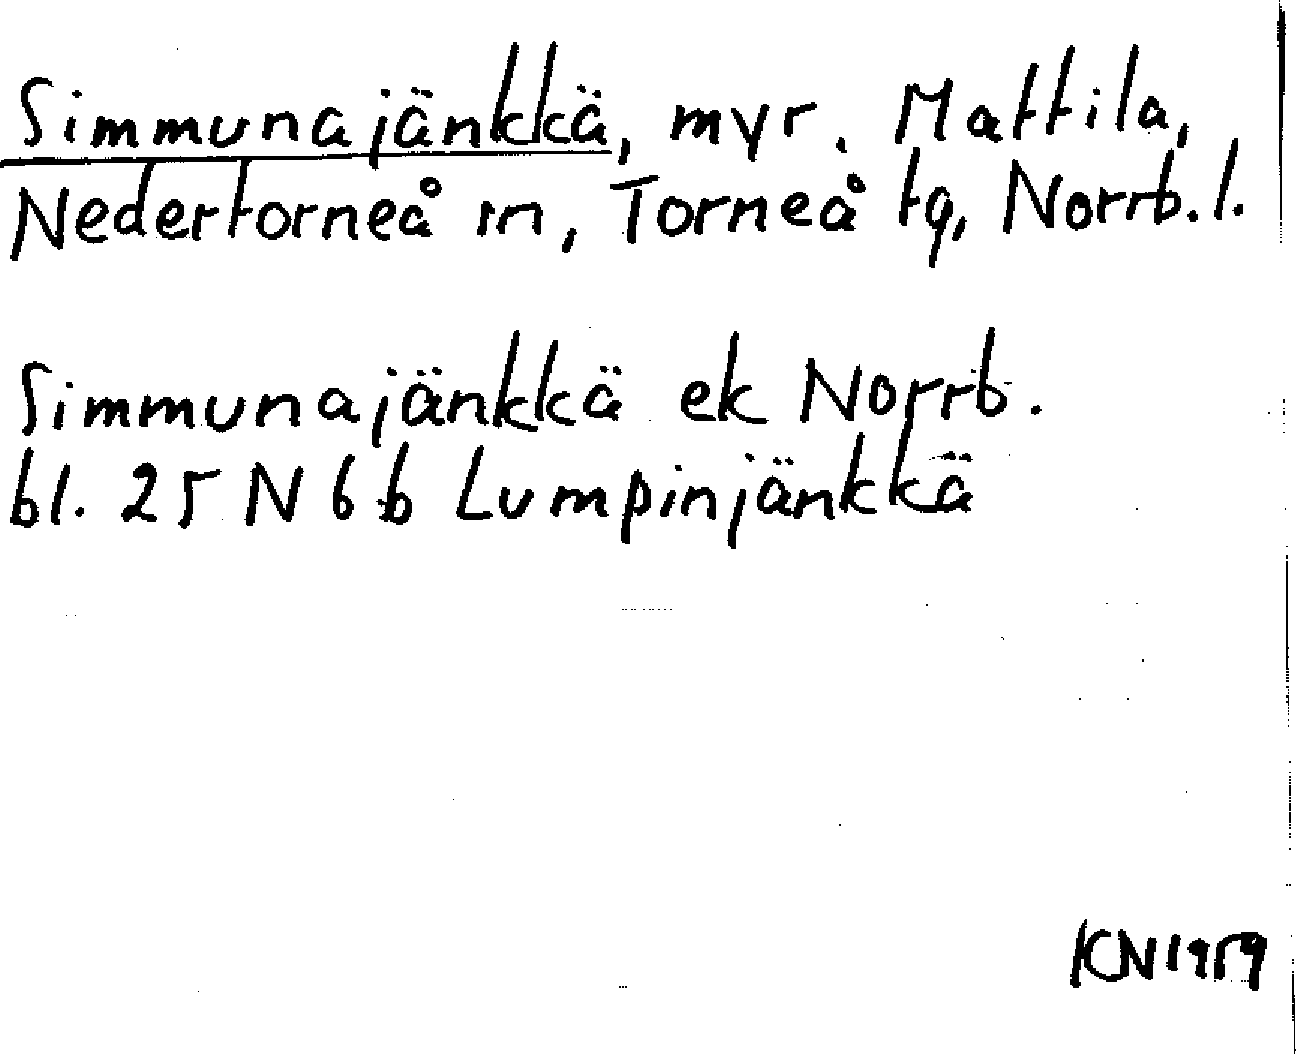 Simmunajänkkä, myr. Mattila,
Nedertorneå sn, Torneå tg, Norrb. l.
Simmunajänkkä ek Norrb.
bl. 25 N 6 b Lumpinjänkkä
KCN 1959